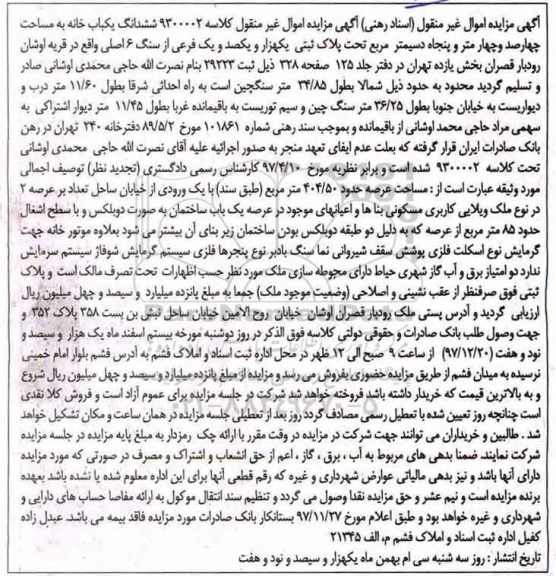 آگهی مزایده اموال غیر منقول (اسناد رهنی) آگهی مزایده اموال غیر منقول کلاسه ۹۳۰۰۰۰۲ ششدانگ یکباب خانه به مساحت
چهارصد وچهار متر و پنجاه دسیمتر مربع تحت پلاک ثبتی یکهزار و یکصد و یک فرعی از سنگ ۶ اصلی واقع در قریه اوشان
رودبار قصران بخش یازده تهران در دفتر جلد ۱۲۵ صفحه ۳۲۸ ذیل ثبت ۲۹۲۳۳ بنام نصرت الله حاجی محمدی اوشانی صادر
و تسلیم گردید محدود به حدود ذیل شمالا بطول ۳۴/۸۵ متر سنگچین است به راه احداثی شرقا بطول ۱۱/۶۰ متر درب و
دیواریست به خیابان جنوبا بطول ۳۶/۲۵ متر سنگ چین و سیم توریست به باقیمانده غربا بطول ۱۱/۴۵ متر دیوار اشتراکی به
سهمی مراد حاجی محمد اوشانی از باقیمانده و بموجب سند رهنی شماره ۱۰۱۸۶۱ مورخ ۸۹/۵/۲ دفترخانه ۲۴۰ تهران در رهن
بانک صادرات ایران قرار گرفته که بعلت عدم ایفای تعهد منجر به صدور اجرائیه علیه آقای نصرت الله حاجی محمدی اوشانی
تحت کلاسه ۹۳۰۰۰۰۲ شده است و برابر نظریه مورخ ۹۷/۴/۲۰ کارشناس رسمی دادگستری (تجدید نظر) توصیف اجمالی
مورد وثیقه عبارت است از : مساحت عرصه حدود ۴۰۴/۵۰ متر مربع (طبق سند) با یک ورودی از خیابان ساحل تعداد بر عرصه ۲
در نوع ملک ویلایی کاربری مسکونی بنا ها و اعیانهای موجود در عرصه یک باب ساختمان به صورت دوبلکس و با سطح اشغال
حدود ۸۵ متر مربع از عرصه که به دلیل دو طبقه دوبلکس بودن ساختمان زیر بنای آن بیشتر می شود بعلاوه موتور خانه جهت
گرمایش نوع اسکلت فلزی پوشش سقف شیروانی نما سنگ بادبر نوع پنجرها فلزی سیستم گرمایش شوفاژ سیستم سرمایش
ندارد دو امتیاز برق و آب گاز شهری حیاط دارای محوطه سازی ملک مورد نظر حسب اظهارات تحت تصرف مالک است و پلاک
ثبتی فوق صرفنظر از عقب نشینی و اصلاحی (وضعیت موجود ملک) جمعا به مبلغ پانزده میلیارد و سیصد و چهل میلیون ریال
ارزیابی گردید و آدرس پستی ملک رودبار قصران اوشان خیابان روح الامین خیابان ساحل نبش بن بست ۳۵۸ پلاک ۳۵۲ و
جهت وصول طلب بانک صادرات و حقوقی دولتی کلاسه فوق الذکر در روز دوشنبه مورخه بیستم اسفند ماه یک هزار و سیصد و
نود و هفت (۹۷/۱۲/۲۰) از ساعت ۹ صبح الی ۱۲ ظهر در محل اداره ثبت اسناد و املاک قشم به آدرس قشم بلوار امام خمینی
نرسیده به میدان قشم از طریق مزایده حضوری بفروش می رسد و مزایده از مبلغ پانزده میلیارد و سیصد و چهل میلیون ریال شروع
و به بالاترین قیمت که خریدار داشته باشد فروخته خواهد شد شرکت در جلسه مزایده برای عموم آزاد است و فروش کلا نقدی
است چنانچه روز تعیین شده با تعطیل رسمی مصادف گردد روز بعد از تعطیلی جلسه مزایده در همان ساعت و مکان تشکیل خواهد
شد . طالبین و خریداران می توانند جهت شرکت در مزایده در وقت مقرر با ارائه چک رمزدار به مبلغ پایه مزایده در جلسه مزایده
شرکت نمایند. ضمنا بدهی های مربوط به آب ، برق ، گاز ، اعم از حق انشعاب و اشتراک و مصرف در صورتی که مورد مزایده
دارای آنها باشد و نیز بدهی مالیاتی عوارض شهرداری و غیره که رقم قطعی آنها برای این اداره معلوم شده یا نشده باشد بعهده
برنده مزایده است و نیم عشر و حق مزایده نقدا وصول می گردد و تنظیم سند انتقال موکول به ارائه مفاصا حساب های دارایی و
شهرداری و غیره خواهد بود و طبق اعلام مورخ ۹۷/۱۱/۲۷ بستانکار بانک صادرات مورد مزایده فاقد بیمه می باشد. عبدل زاده
کفیل اداره ثبت اسناد و املاک قشم م، الف ۲۱۳۴۵
تاریخ انتشار : روز سه شنبه سی ام بهمن ماه یکهزار و سیصد و نود و هفت